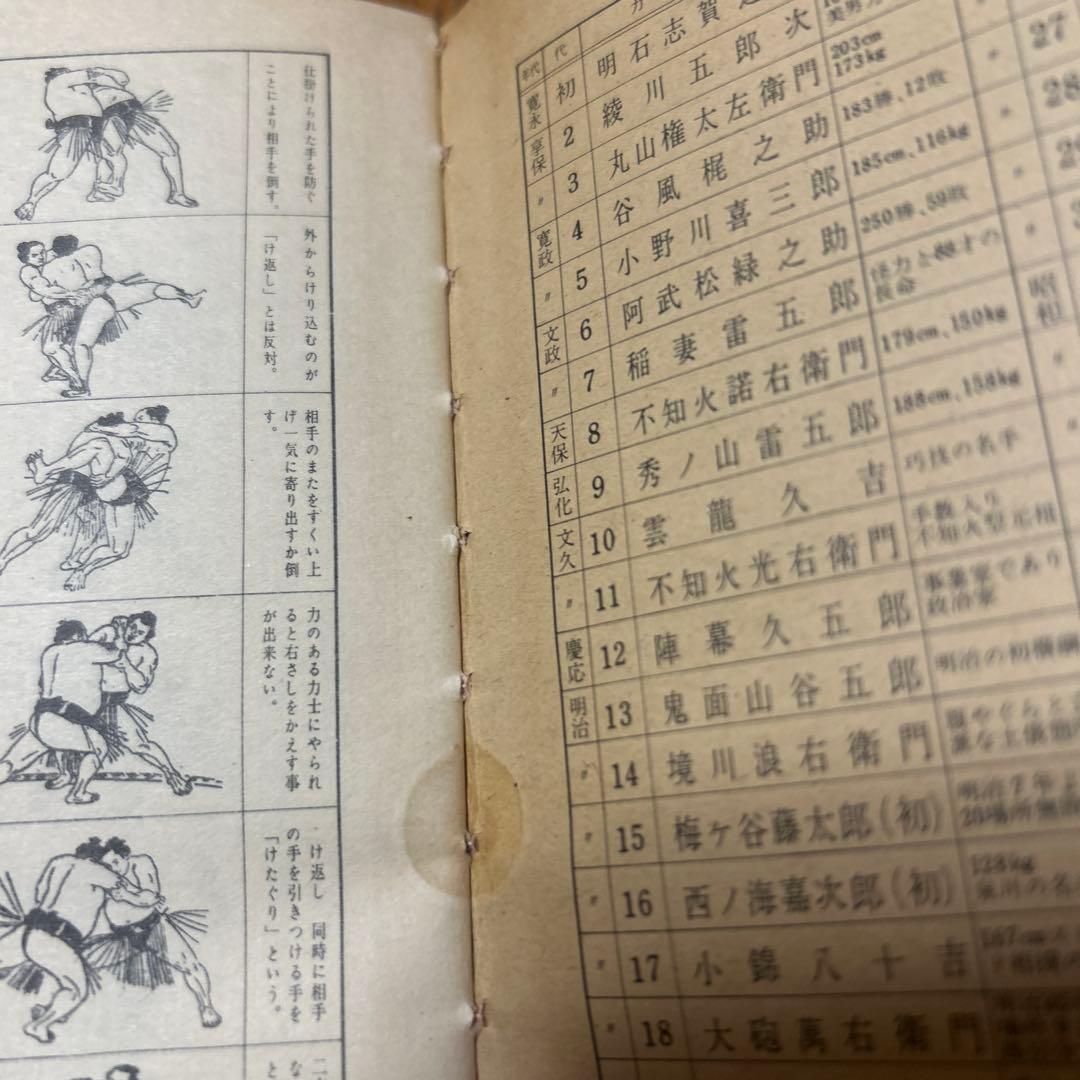 仕掛けられた手を防ぐ
ことにより相手を倒す。
外からけり込むのが
「け返し」とは反対。
相手のまたをすくい上
げ一気に寄り出すか倒
す。
力のある力士にやられ
ると右さしをかえす事
が出来ない。
け返し 同時に相手
の手を引きつける手を
「けたぐり」という。
年代 代
寛永 初 明石志賀
享保 2 綾川五郎次
〃 3 丸山権太左衛門 203cm 173kg
寛政 4 谷風梶之助 183勝、12敗
〃 5 小野川喜三郎 185cm,116kg
文政 6 阿武松緑之助 250勝、59敗
〃 7 稲妻雷五郎 怪力と88才の長命
天保 8 不知火諾右衛門 179cm,150kg
弘化 9 秀ノ山雷五郎 188cm,158kg
文久 10 雲龍久吉 巧技の名手
〃 11 不知火光右衛門 手数入り不知火型元祖
慶応 12 陣幕久五郎 事業家であり政治家
明治 13 鬼面山谷五郎 明治の初横綱
〃 14 境川浪右衛門
〃 15 梅ヶ谷藤太郎(初)
〃 16 西ノ海嘉次郎(初) 128kg
〃 17 小錦八十吉
〃 18 大砲萬右衛門
〃 27
〃 28
昭和